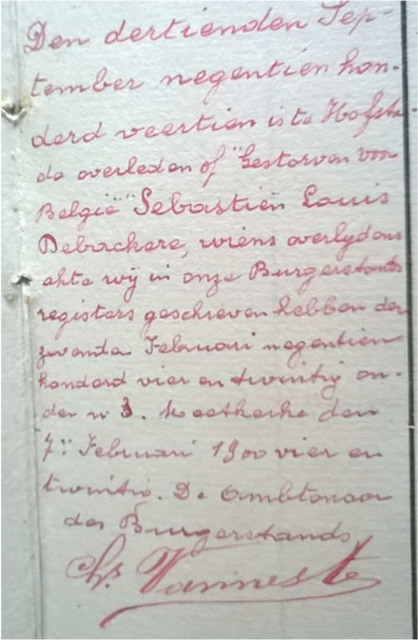 Den dertienden Sep-
tember negentien hon-
derd veertien is te Hofsta-
de overleden of "Gestorven voor
België" Sebastien Louis
Debackere, wiens overlydens
akte wij in onze Burgerstands
registers geschreven hebben den
zevenden Februari negentien
honderd vier en twintig on-
der n 3. Moetkerke den
7n Februari 1900 vier en
twintig. De Ambtenaar
des Burgerstands
Ch. Vanneste